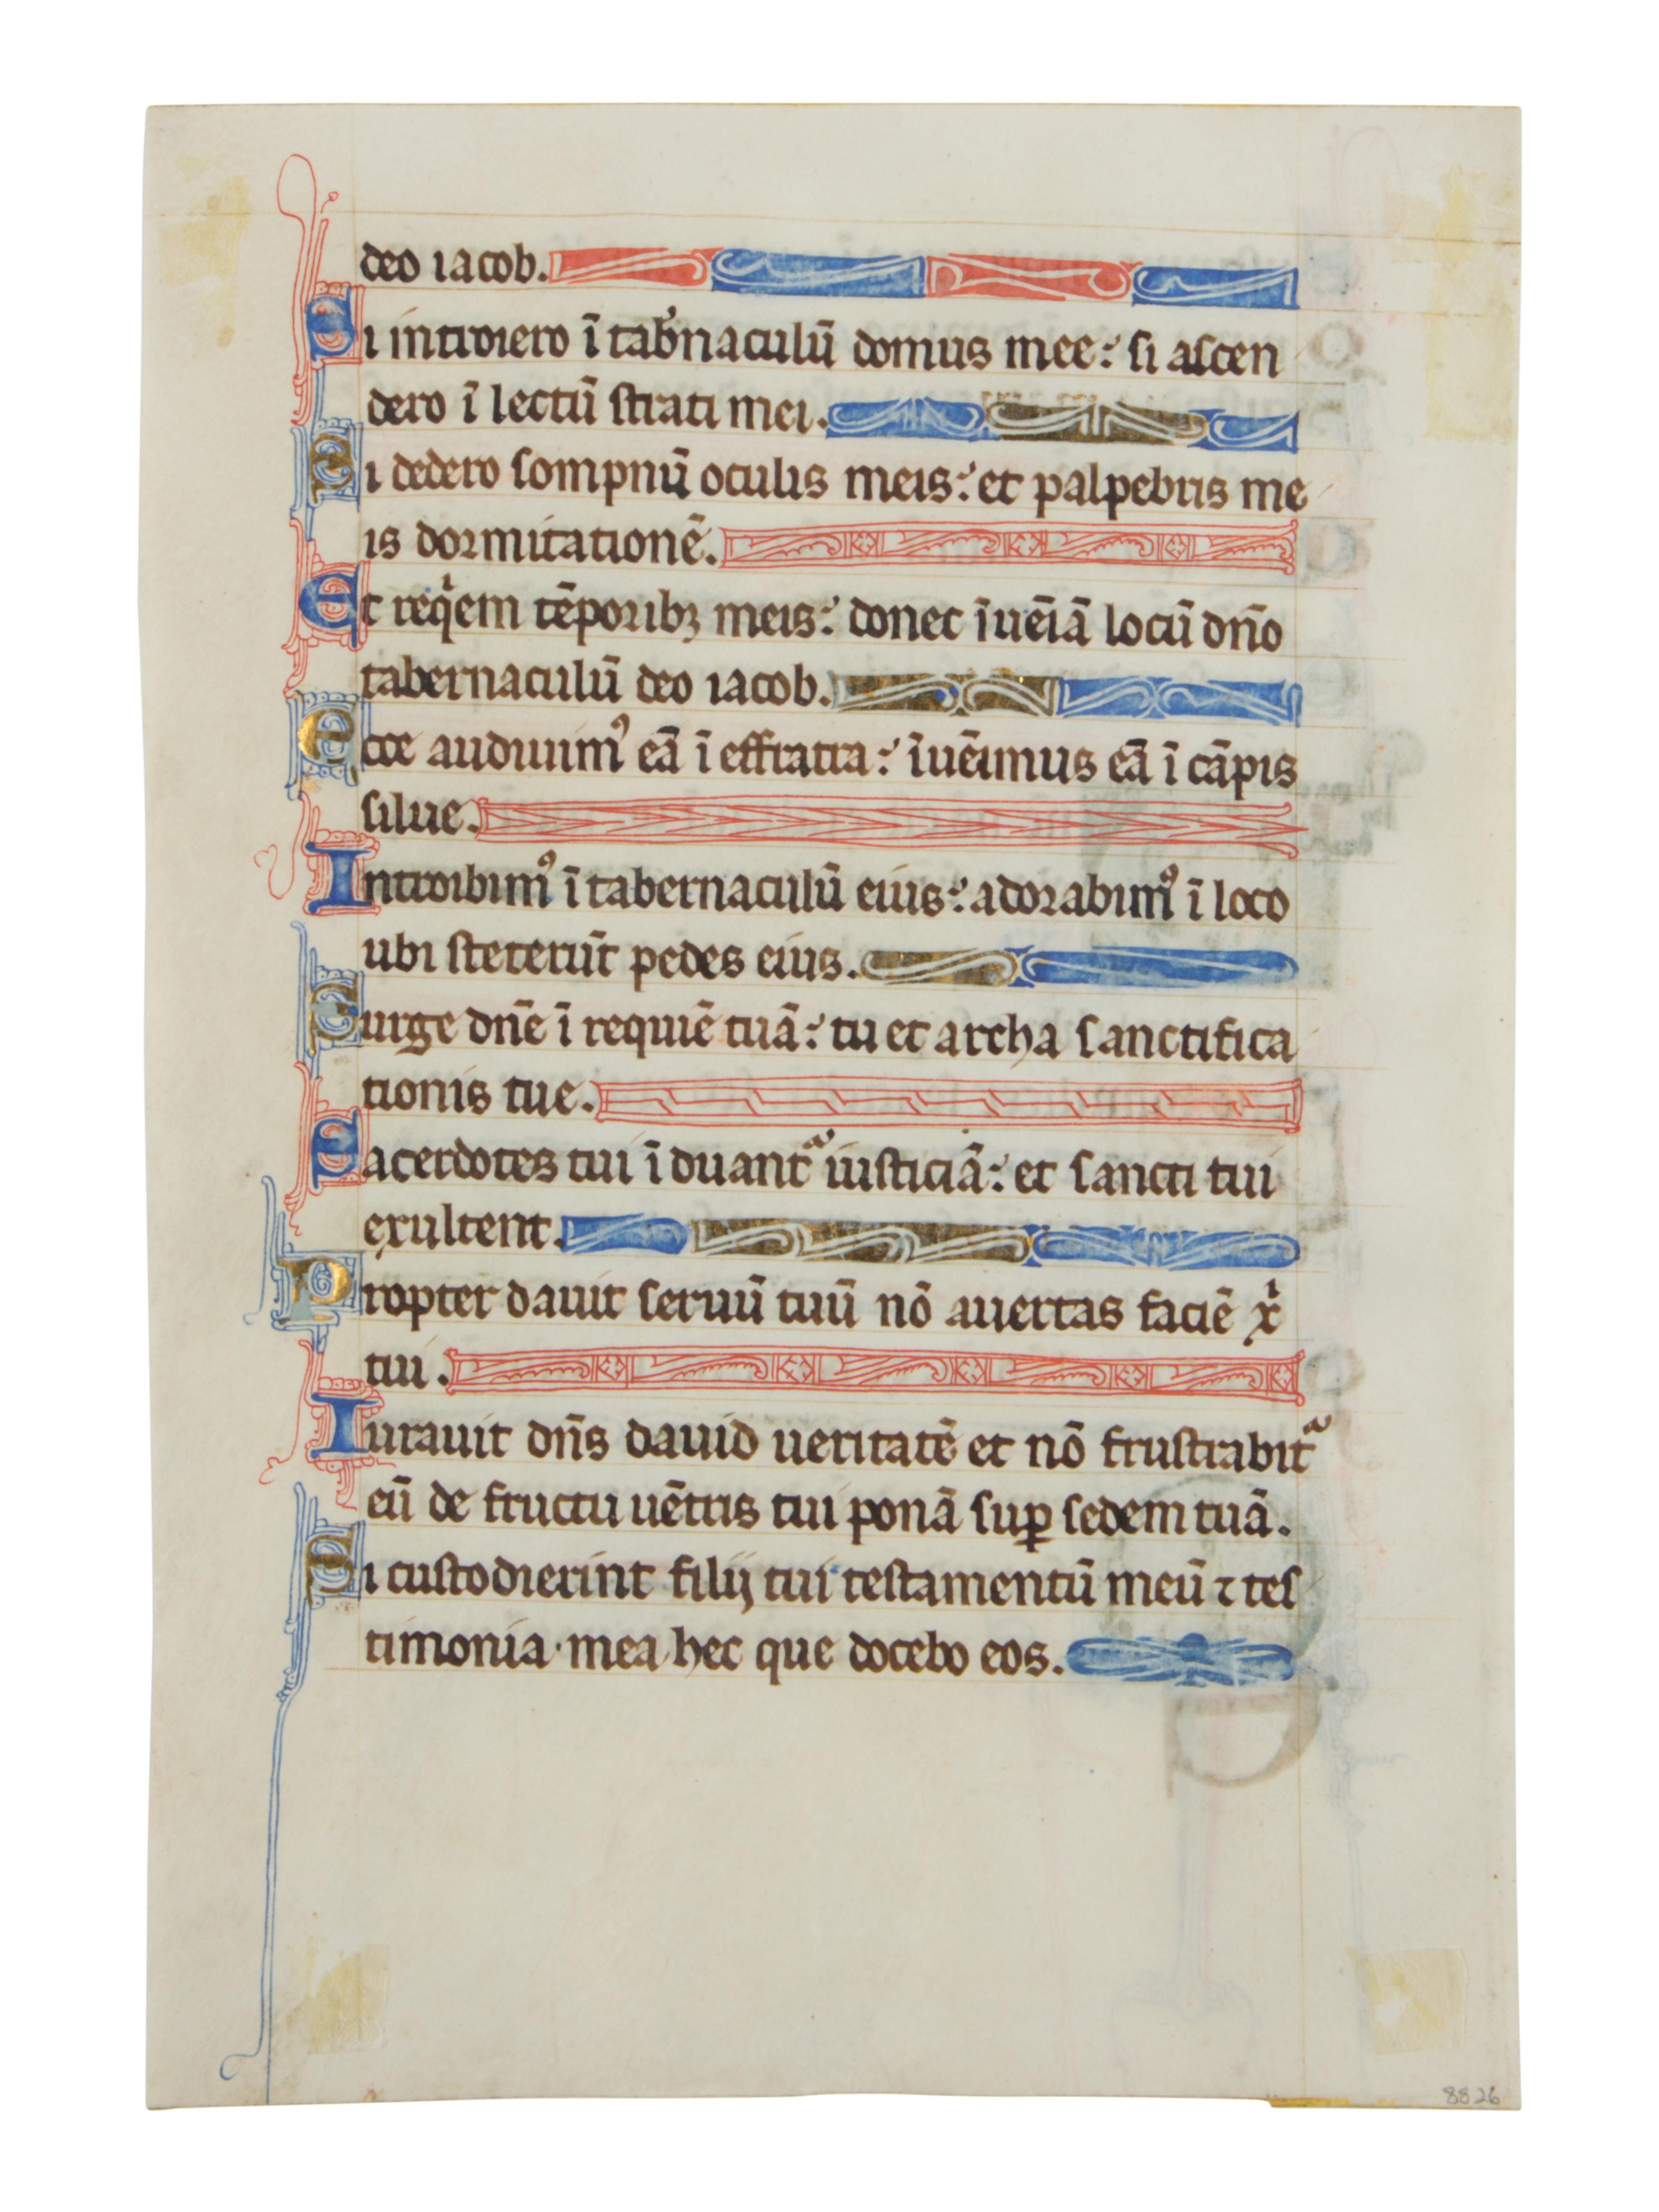 deo iacob.
Si introiero ī tab̓naculū domus mee: si ascen
dero ī lectū strati mei.
Si dedero sompnū oculis meis: et palpebris me
is dormitationē.
Et reqͥem tēporibꝫ meis: donec īuēiā locū dn̄o
tabernaculū deo iacob.
Ecce audiuimꝰ eā ī effrata: īuēimus eā ī cāpis
silue.
Introibimꝰ ī tabernaculū eius: adorabimꝰ ī loco
ubi steterūt pedes eius.
Surge dn̄e ī requiē tuā: tu et archa sanctifica
tionis tue.
Sacerdotes tui īduantᷓ iusticiā: et sancti tui
exultent.
Propter dauit seruū tuū nō auertas faciē xͥ
tui.
Iurauit dn̄s dauid ueritatē et nō frustrabitᷓ
eū de fructu uētris tui ponā suꝑ sedem tuā.
Si custodierint filij tui testamentū meū ⁊ tes
timonia mea hec que docebo eos.
8826